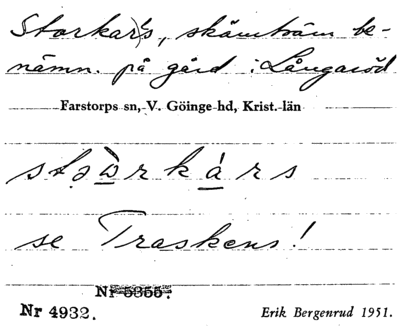 Storkar's, skämtnamn be-
nämn. på gård i Långaröd
Farstorps sn, V. Göinge hd, Krist. län
stɔ̀rkárs
se Traskens!
Nr 5355.
Nr 4932.
Erik Bergenrud 1951.